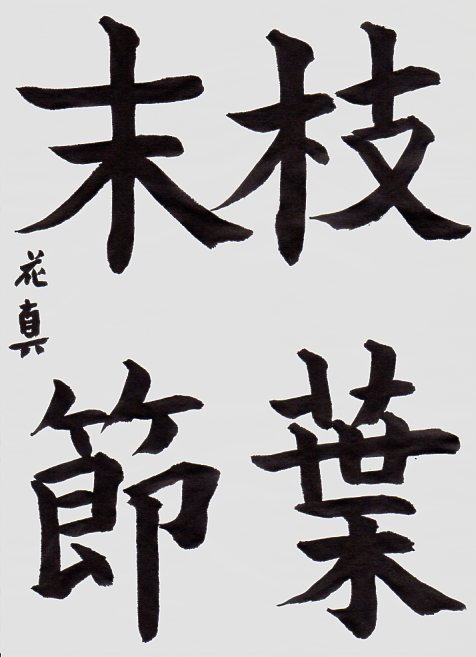 枝葉
末節
花真